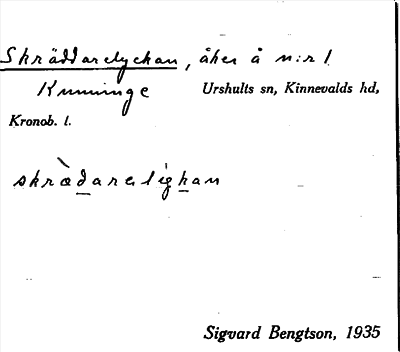 Skräddarelyckan, åker å n:r 1
Kunninge Urshults sn, Kinnevalds hd,
Kronob. l.
Sigvard Bengtson, 1935